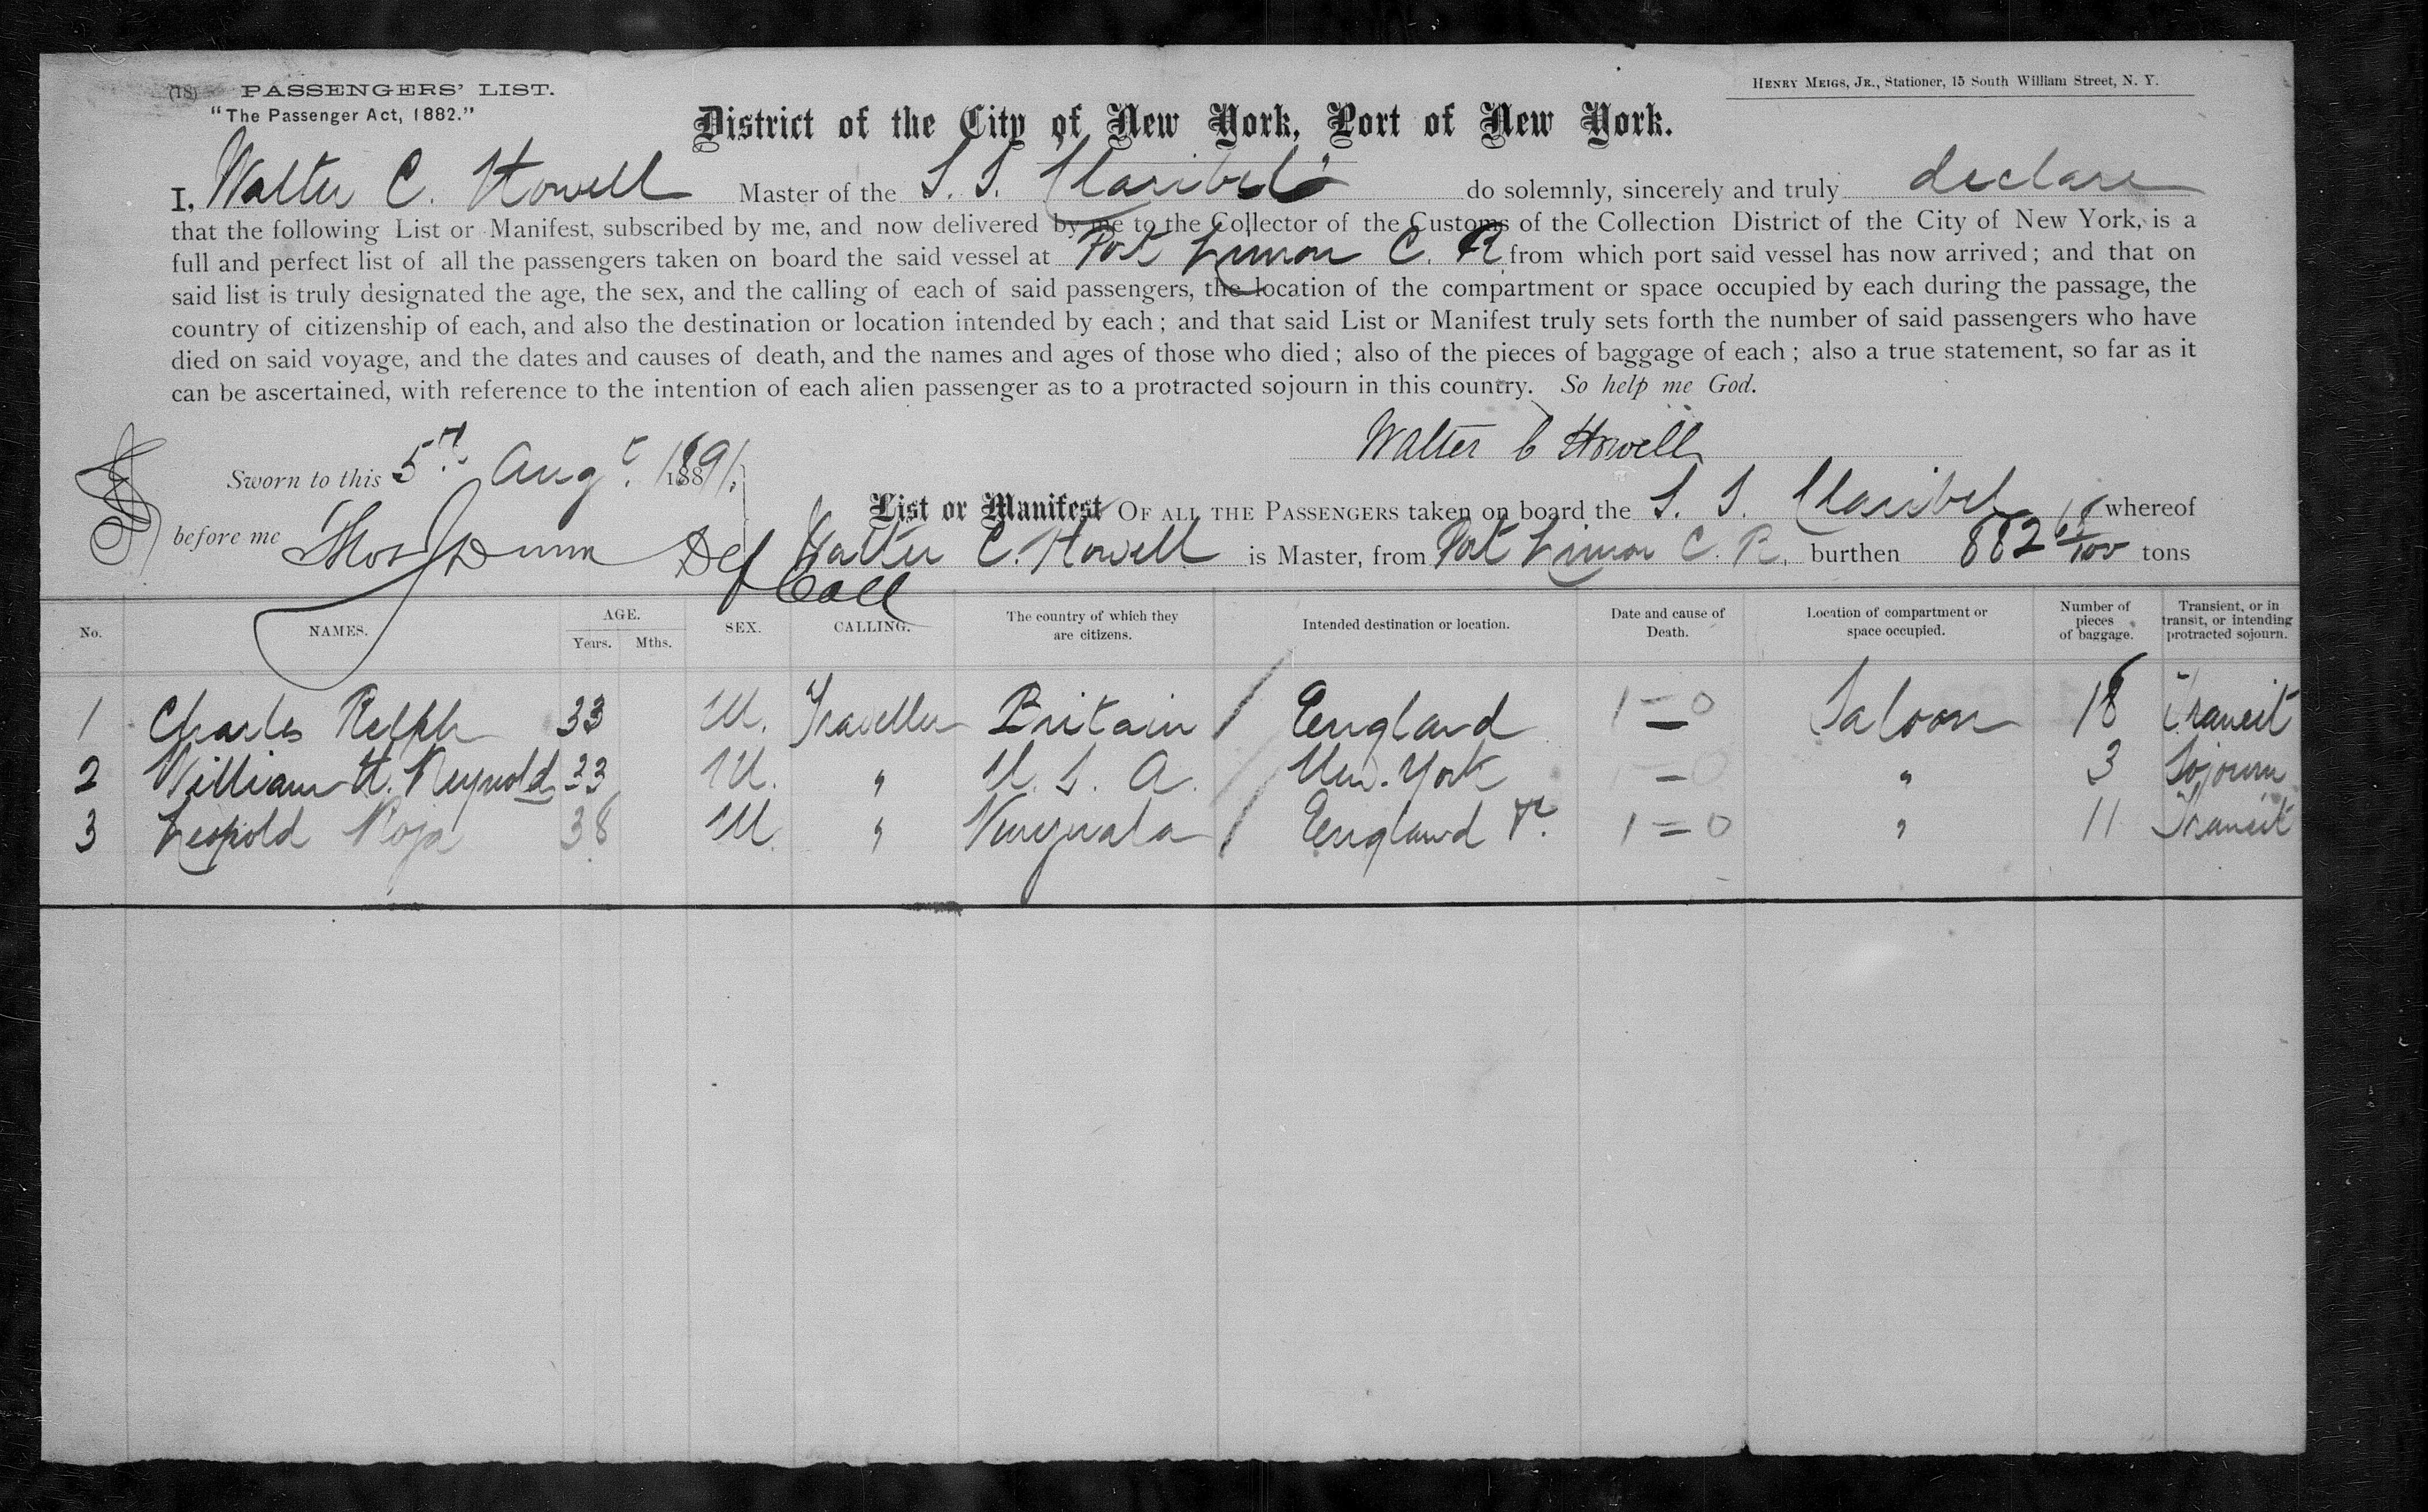 (18) PASSENGERS' LIST.
HENRY MEIGS, JR., Stationer, 15 South William Street, N. Y.
"The Passenger Act, 1882."
District of the City of New York, Port of New York.
I, Walter C. Howell Master of the S. S. Claribel do solemnly, sincerely and truly declare
that the following List or Manifest, subscribed by me, and now delivered by me to the Collector of the Customs of the Collection District of the City of New York, is a
full and perfect list of all the passengers taken on board the said vessel at Port Limon C. R. from which port said vessel has now arrived; and that on
said list is truly designated the age, the sex, and the calling of each of said passengers, the location of the compartment or space occupied by each during the passage, the
country of citizenship of each, and also the destination or location intended by each; and that said List or Manifest truly sets forth the number of said passengers who have
died on said voyage, and the dates and causes of death, and the names and ages of those who died; also of the pieces of baggage of each; also a true statement, so far as it
can be ascertained, with reference to the intention of each alien passenger as to a protracted sojourn in this country. So help me God.
Walter C Howell
Sworn to this 5th Augt. 1891.
List or Manifest OF ALL THE PASSENGERS taken on board the S. S. Claribel whereof
before me Thos J Dunn Dep Coll Walter C. Howell is Master, from Port Limon C. R. burthen 882 /100 tons
No. NAMES. AGE. Years. Mths. SEX. CALLING. The country of which they are citizens. Intended destination or location. Date and cause of Death. Location of compartment or space occupied. Number of pieces of baggage. Transient, or in transit, or intending protracted sojourn.
1 Charles Relph 33 M. Traveller Britain / England 1 - 0 Saloon 18 Transit
2 William H. Reynolds 33 M. " U. S. A. / New York - 0 " 3 Sojourn
3 Leopold Roja 38 M " Venezuela / England 1 = 0 " 11 Transit